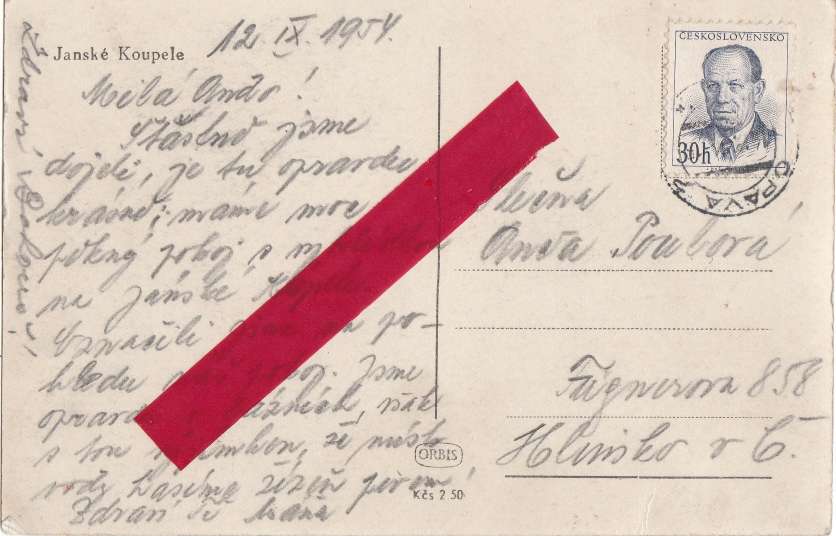 Janské Koupele
12 IX. 1954.
Milá Anďo!
Šťastně jsme
dojeli, je tu opravdu
krásně; máme moc
pěkný pokoj s
na Janské
Označili na po-
hledu pokoj. Jsme
v lázních, však
s tou, že místo
vody hasíme žízeň pivem!
Zdraví Tě
Zdraví
ČESKOSLOVENSKO
30h
OPAVA
Slečna
Anďa Poulová
Fügnerova 858
Hlinsko v Č.
ORBIS
Kčs 2.50